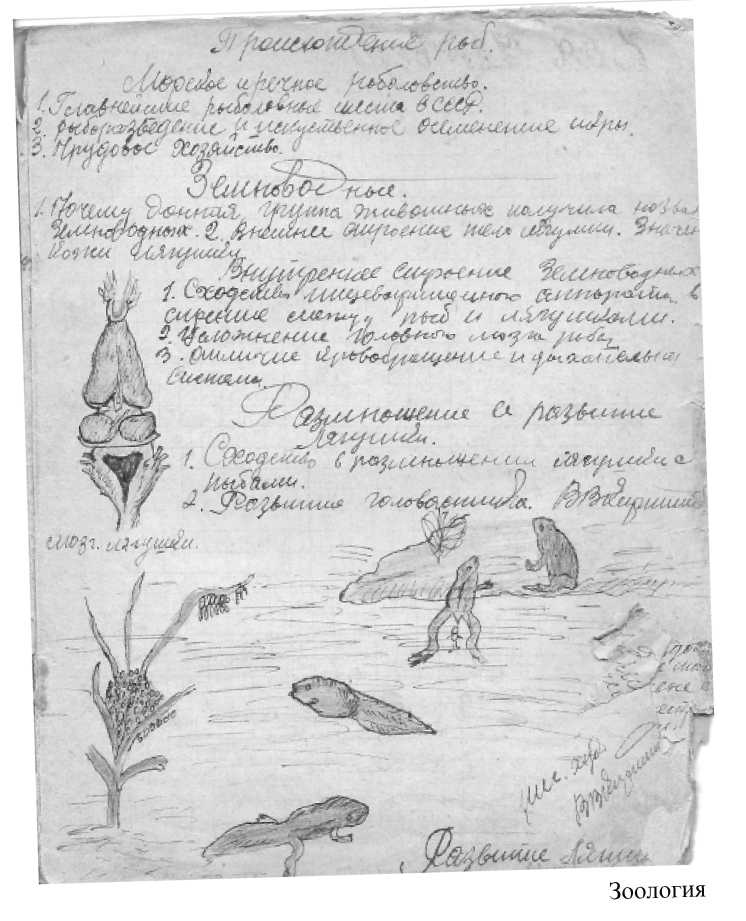 Происхождение рыб.
Морское и речное рыболовство.
1. Главнейшие рыболовные места в СССР.
2. рыборазведение и искуственное осеменение икры.
3. Прудовое хозяйство.
Земноводные.
1. Почему данная группа животных получила назва
Земноводных. 2. Внешнее строение тела лягушки. Значен
кожи лягушки
Внутреннее строение Земноводных
1. Сходство пищеварительного аппарата в
строение между рыб и лягушками.
2. Усложнение головного мозга рыбы
3. Отличие кровообращение и дыхательная
система.
Размножение и развитие
Лягушки.
1. Сходство в размножении лягушки с
рыбами.
2. Развития головастика.
мозг. лягушки.
ене
Развитие Лягш
Зоология